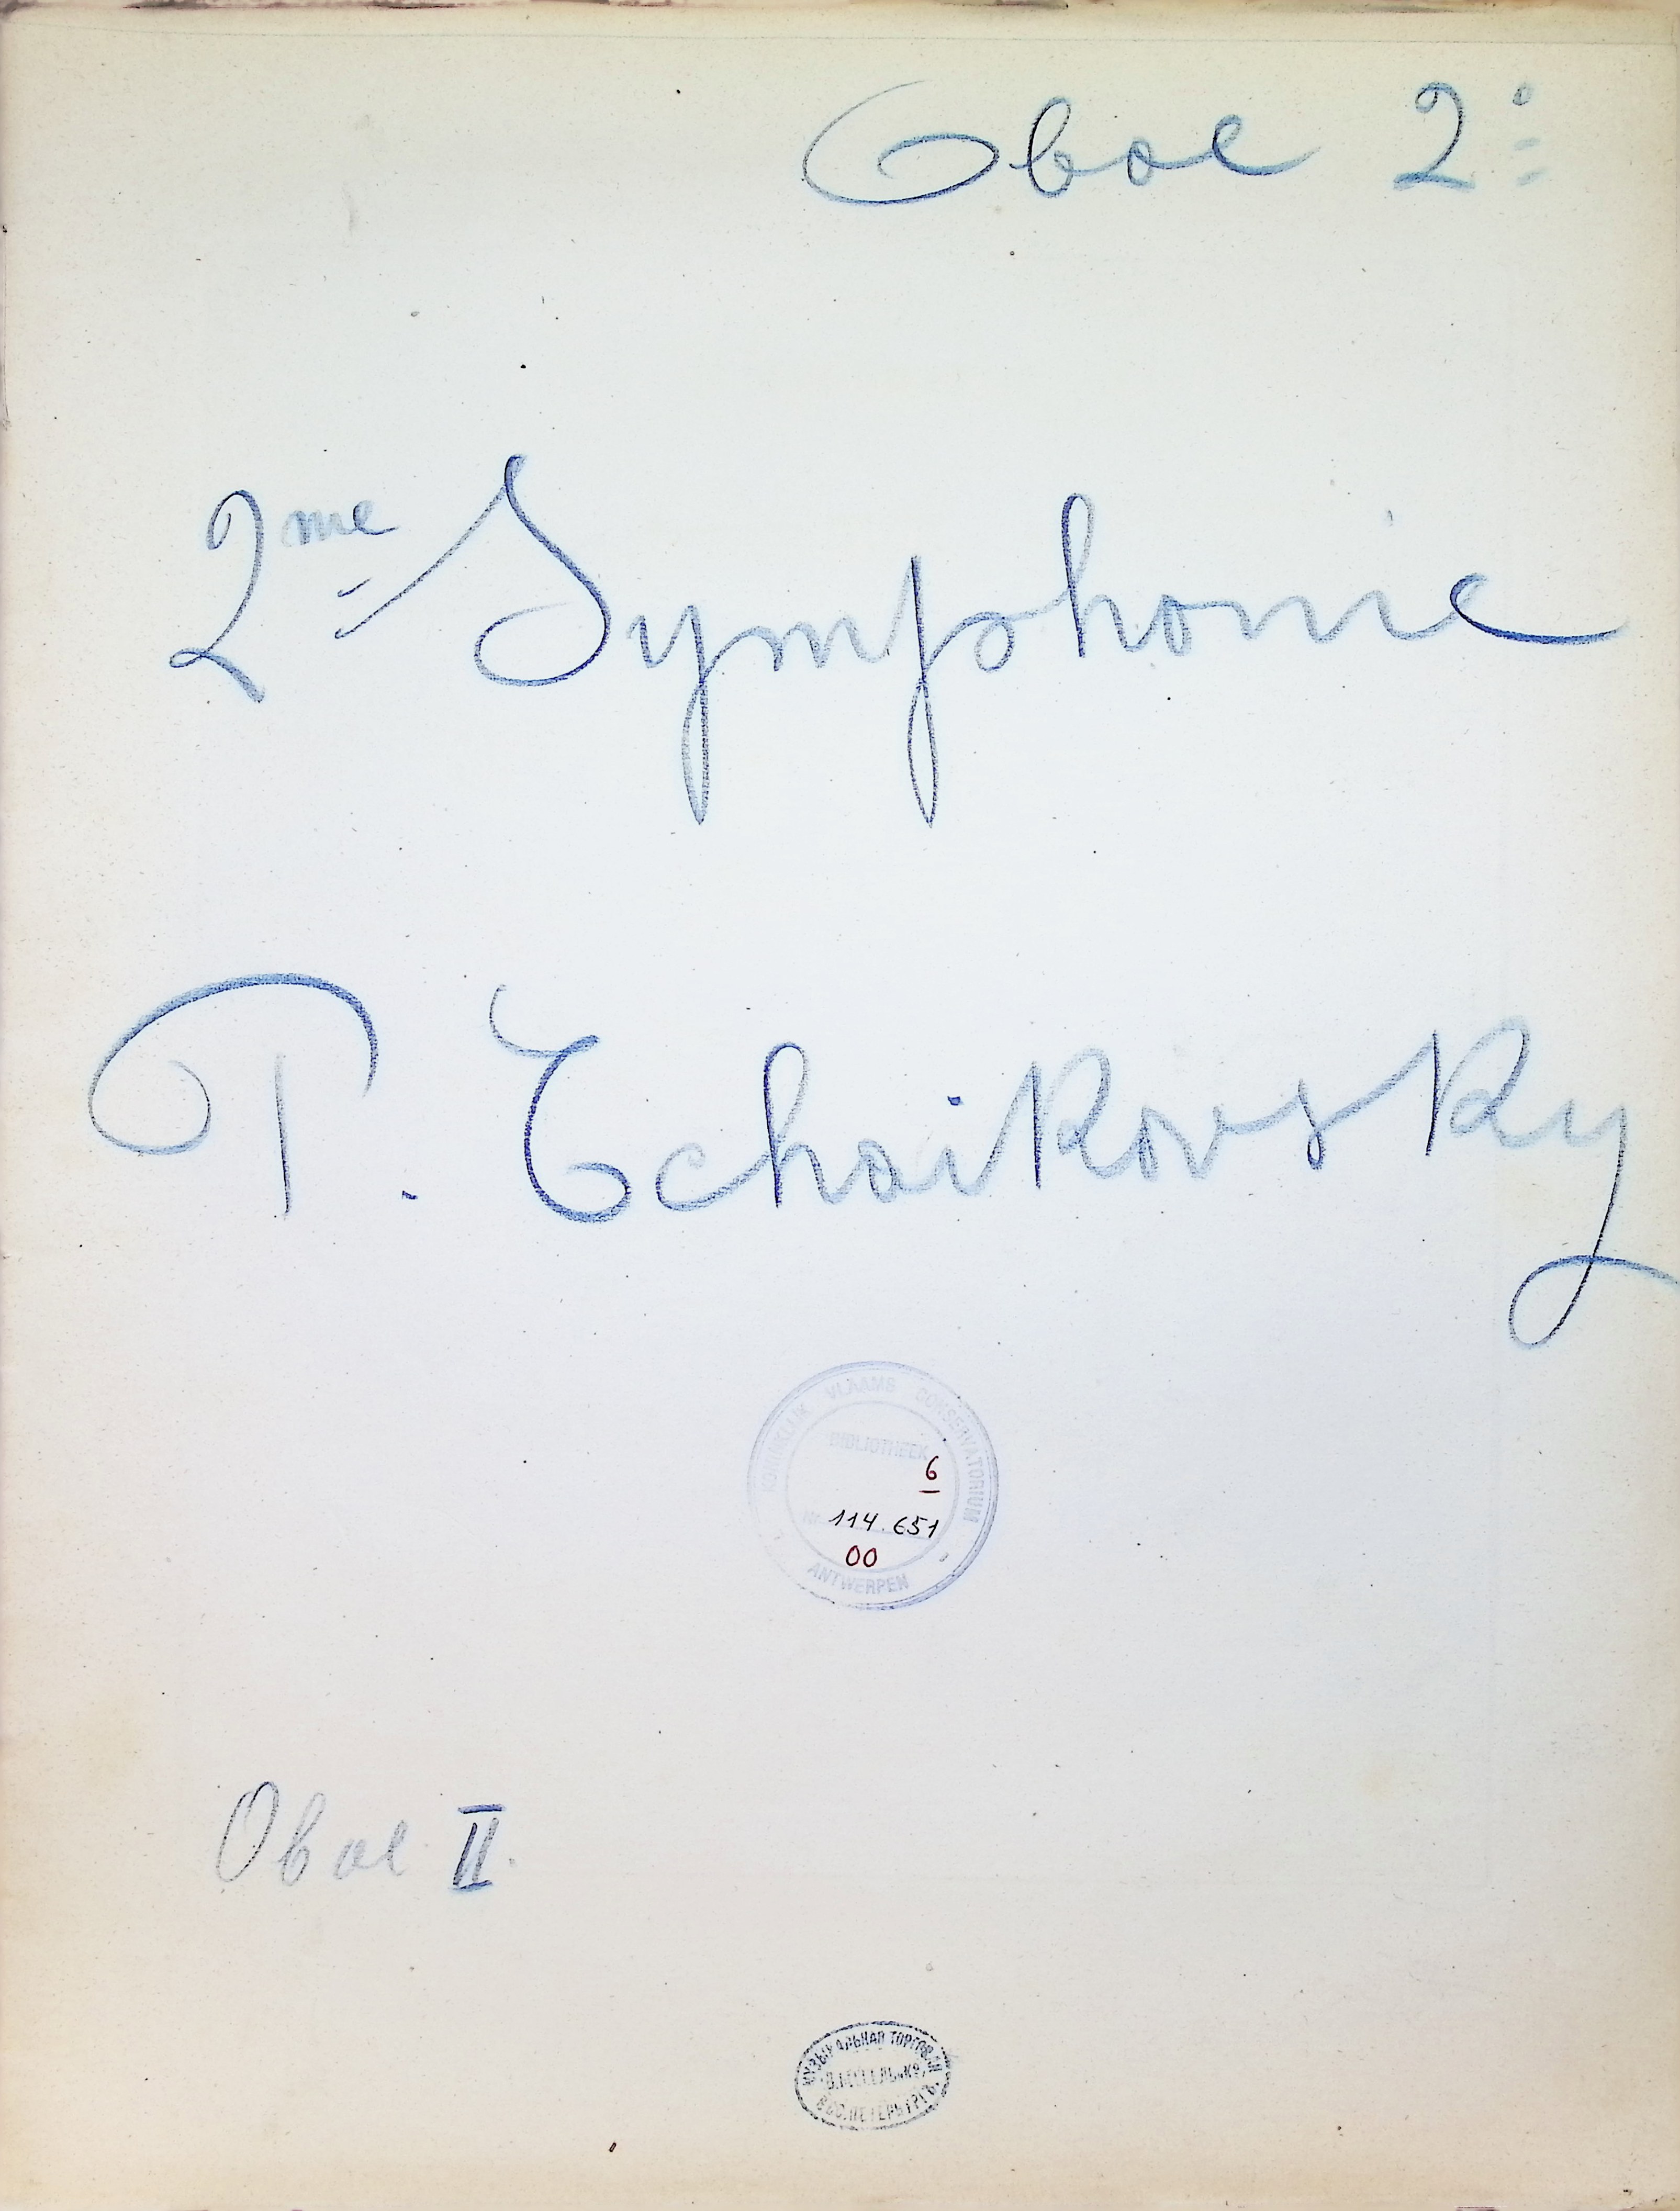 Oboe 2º
2me Symphonie
P. Tchaikovsky
KONINKLIJK VLAAMS CONSERVATORIUM
BIBLIOTHEEK
6
Nr 114.651
00
ANTWERPEN
Oboe II.
МУЗЫКАЛЬНАЯ ТОРГОВЛЯ
В.БЕССЕЛЬ и Кº.
ВЪ С.ПЕТЕРБУРГѢ.